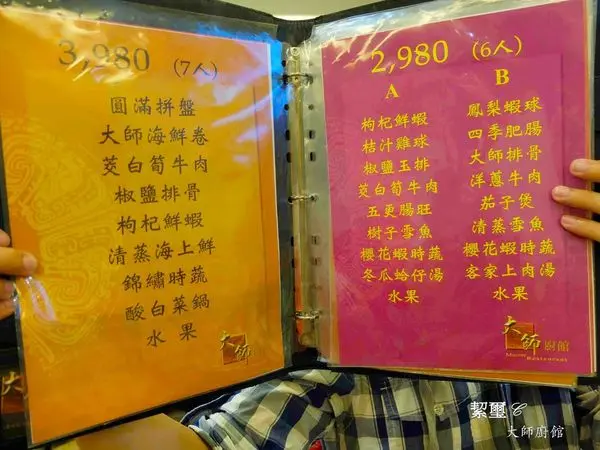 3,980 (7人)
圓滿拼盤
大師海鮮卷
茭白筍牛肉
椒鹽排骨
枸杞鮮蝦
清蒸海上鮮
錦繡時蔬
酸白菜鍋
水果
大師
2,980 (6人)
A
枸杞鮮蝦
桔汁雞球
椒鹽玉排
茭白筍牛肉
五更腸旺
樹子雪魚
櫻花蝦時蔬
冬瓜蛤仔湯
水果
B
鳳梨蝦球
四季肥腸
大師排骨
洋蔥牛肉
茄子煲
清蒸雪魚
櫻花蝦時蔬
客家上肉湯
水果
大師廚館
Master Restaurant
絜璽
大師廚館